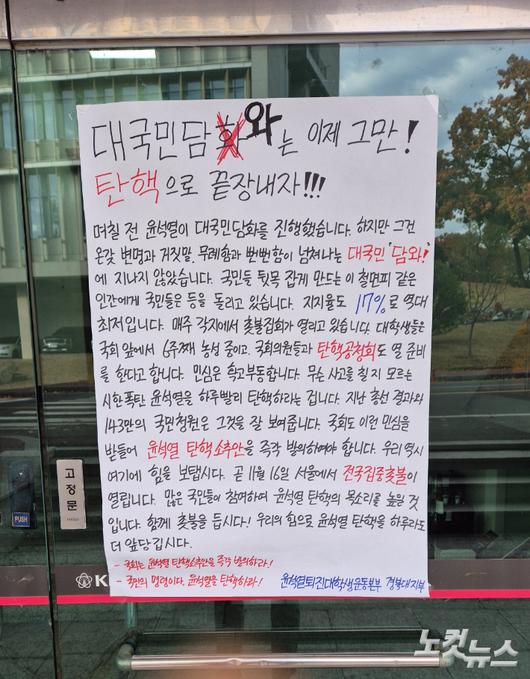 대국민담화와는 이제 그만!
탄핵으로 끝장내자!!!
며칠 전 윤석열이 대국민담화를 진행했습니다. 하지만 그건
온갖 변명과 거짓말, 무례함과 뻔뻔함이 넘쳐나는 대국민 '담와!'
에 지나지 않았습니다. 국민들 뒷목 잡게 만드는 이 철면피 같은
인간에게 국민들은 등을 돌리고 있습니다. 지지율도 17%로 역대
최저입니다. 매주 각지에서 촛불집회가 열리고 있습니다. 대학생들은
국회 앞에서 6주째 농성 중이고, 국회의원들과 탄핵공청회도 열 준비
를 한다고 합니다. 민심은 확고부동합니다. 무슨 사고를 칠 지 모르는
시한폭탄 윤석열을 하루빨리 탄핵하라는 겁니다. 지난 총선 결과와
143만의 국민청원은 그것을 잘 보여줍니다. 국회도 이런 민심을
받들어 윤석열 탄핵소추안을 즉각 발의하여야 합니다. 우리 역시
여기에 힘을 보탭시다. 곧 11월 16일 서울에서 전국집중촛불이
열립니다. 많은 국민들이 참여하여 윤석열 탄핵의 목소리를 높일 것
입니다. 함께 촛불을 듭시다! 우리의 힘으로 윤석열 탄핵을 하루라도
더 앞당깁시다.
- 국회는 윤석열 탄핵소추안을 즉각 발의하라!
- 국민의 명령이다. 윤석열을 탄핵하라!
윤석열퇴진대학생운동본부 경북대지부
고정문
PUSH
노컷뉴스